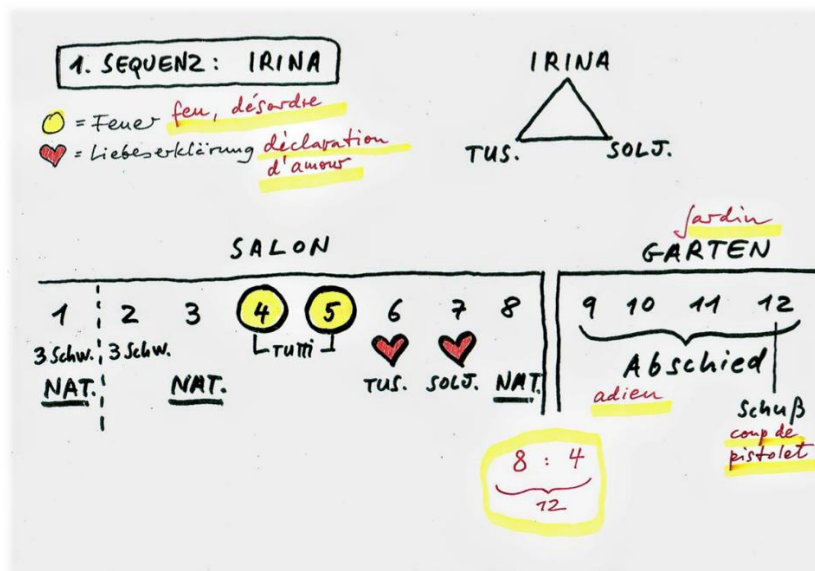 1. SEQUENZ: IRINA
= Feuer feu, désordre
= Liebeserklärung déclaration
d'amour
IRINA
TUS. SOLJ.
SALON
jardin
GARTEN
1 2 3 4 5 6 7 8 9 10 11 12
3 Schw. 3 Schw. Tutti
NAT. NAT. TUS. SOLJ. NAT. Abschied
adieu
Schuß
coup de
pistolet
8 : 4
12